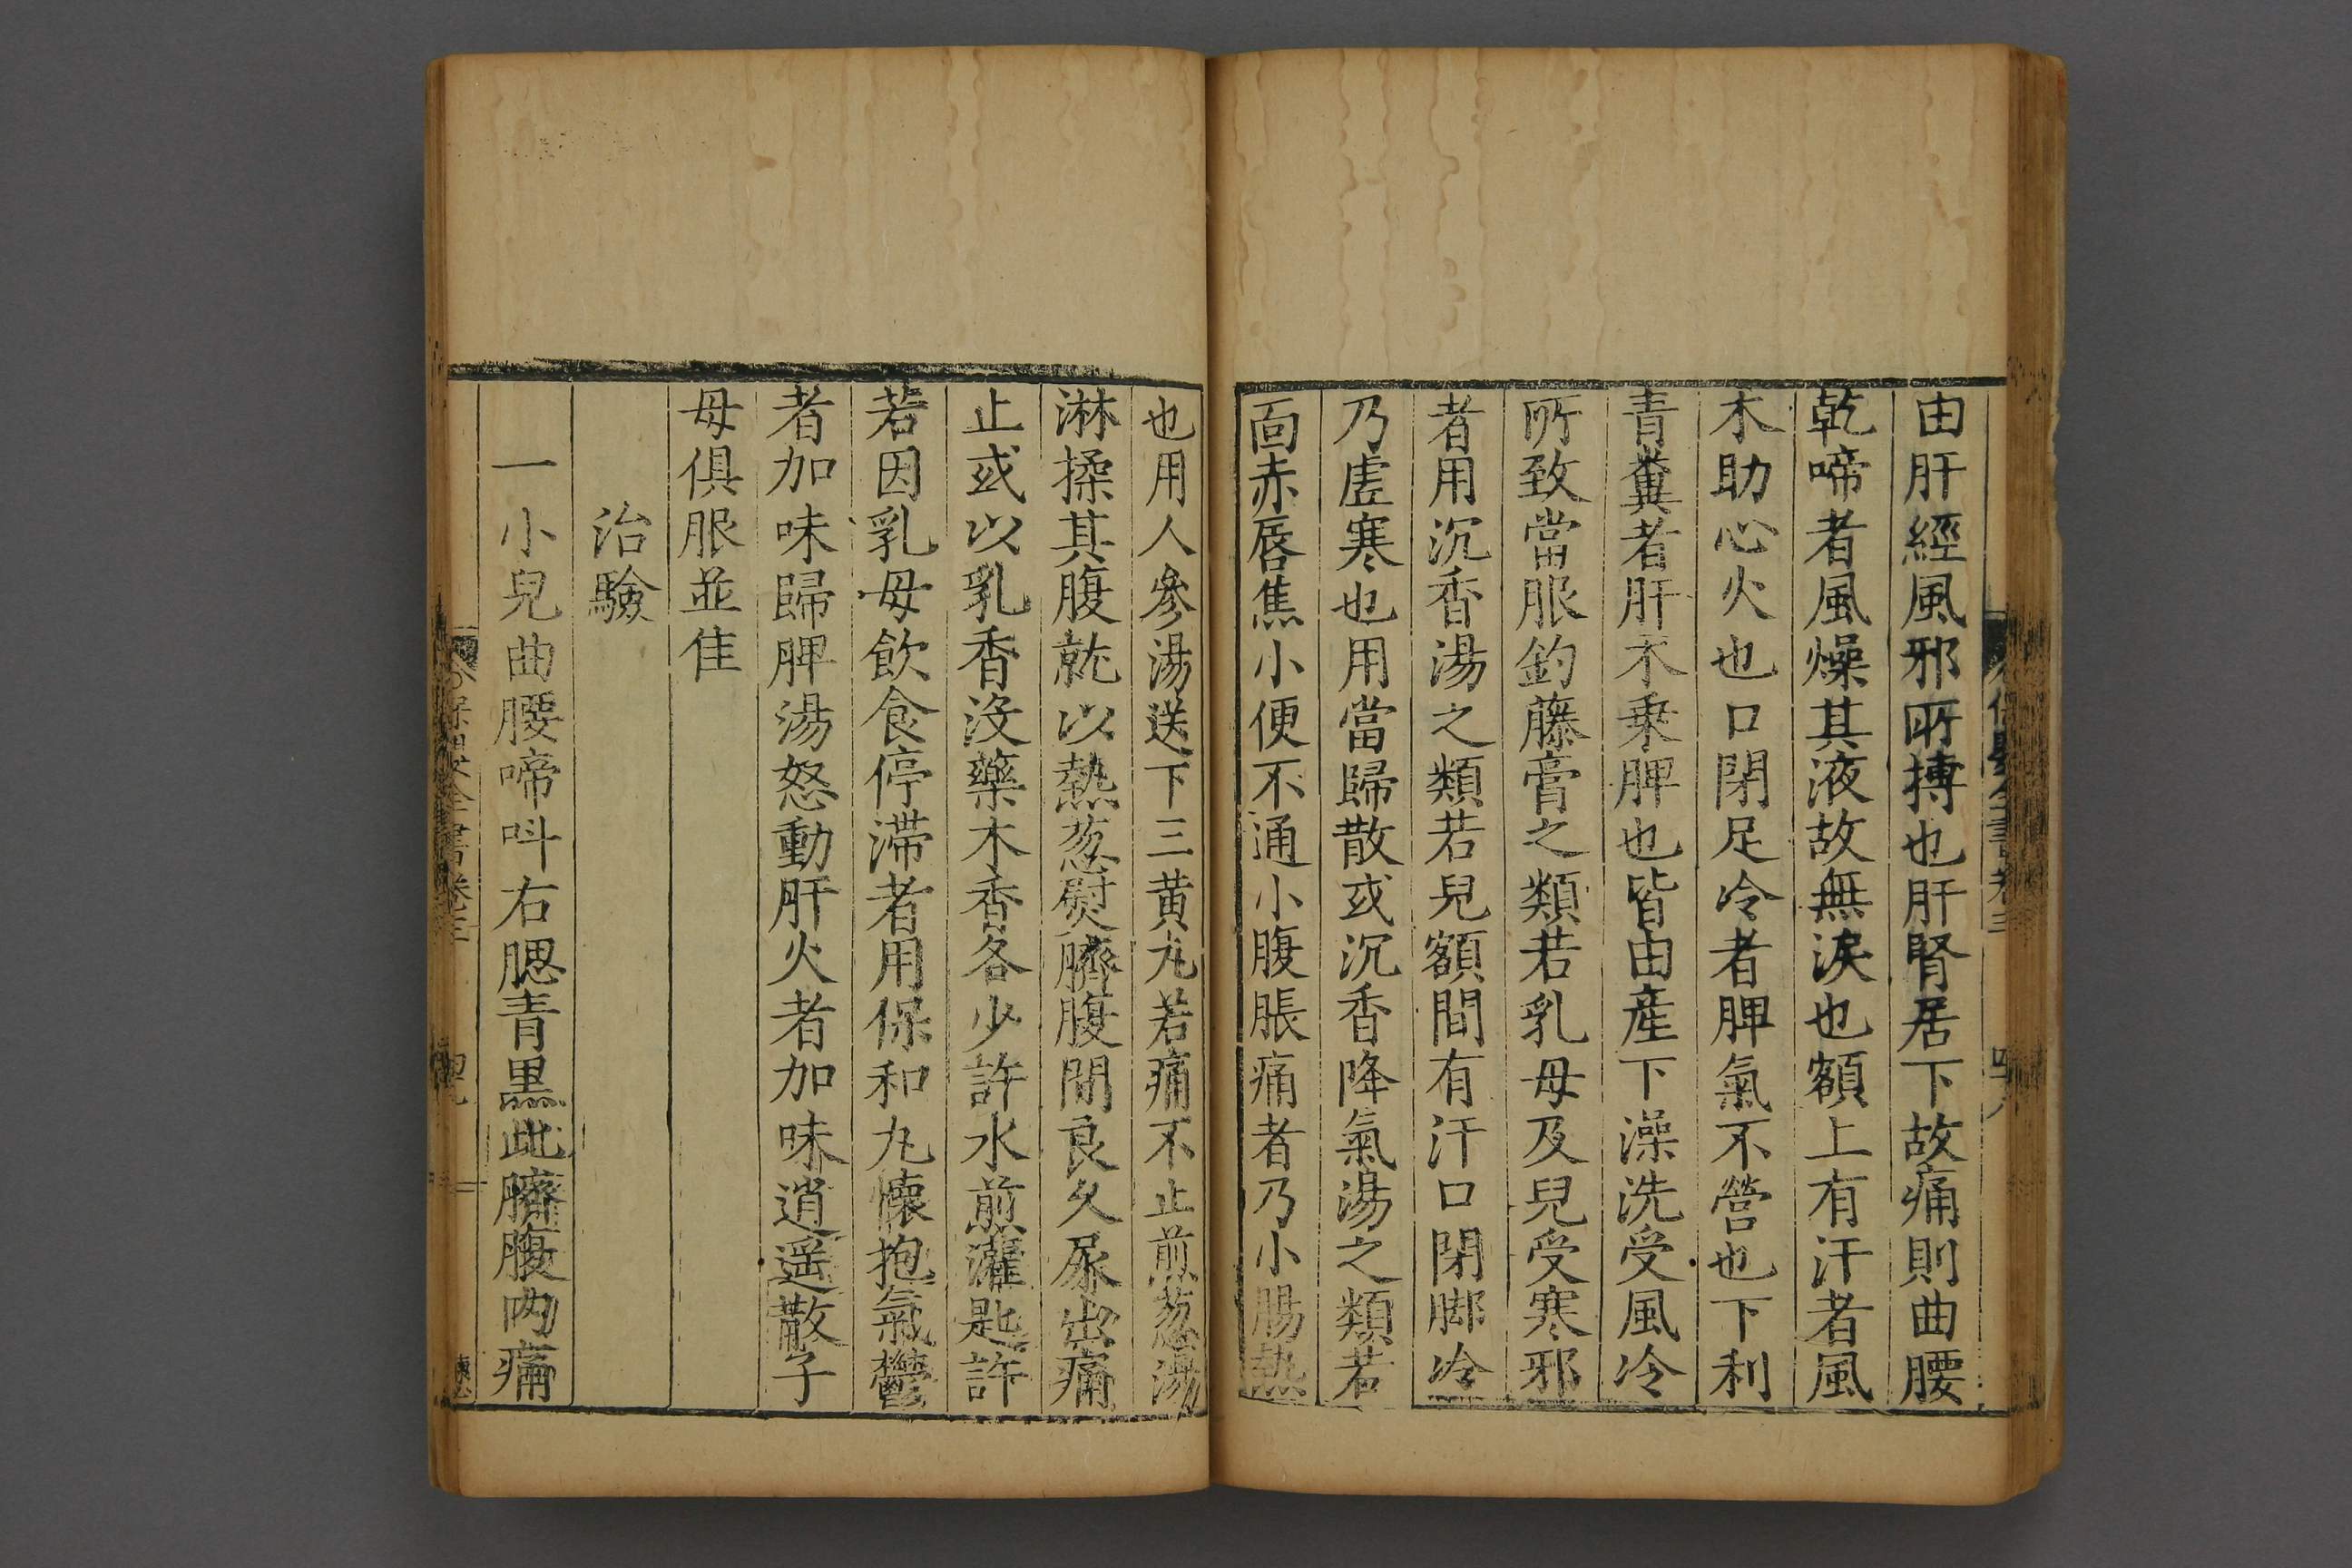 由肝經風邪所搏也肝腎居下故痛則曲腰
乾啼者風燥其液故無淚也額上有汗者風
木助心火也口閉足冷者脾氣不營也下利
青糞者肝木乗脾也皆由産下澡洗受風冷
所致當服釣藤膏之類若乳母及兒受寒邪
者用沉香湯之類若兒額間有汗口閉脚冷
乃虛寒也用當歸散或沉香降氣湯之類若
面赤唇焦小便不通小腹脹痛者乃小腸熱
也用人參湯送下三黄丸若痛不止煎葱湯
淋揉其腹就以熱葱熨臍腹間良久尿出痛
止或以乳香没藥木香各少許水煎灌匙許
若因乳母飲食停滯者用保和丸懷抱氣鬱
者加味歸脾湯怒動肝火者加味逍遥散子
母俱服並佳
治驗
一小兒曲腰啼呌右腮青黒此臍腹内痛
保嬰全書卷三
四九